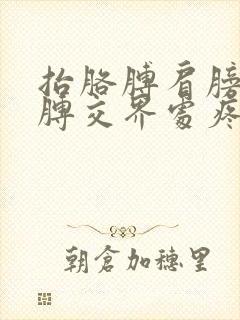 抬胳膊肩膀
膊交界處疼
朝倉加穗里